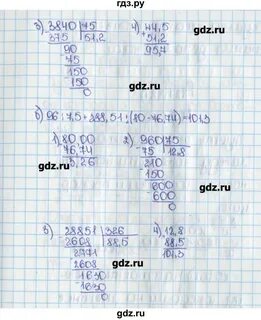 гдз.ру
3) 3840 |75
375 |51,2
90
75
150
150
0
4) 44,5
+ 51,2
95,7
б) 96 : 7,5 + 288,51 : (80 - 76,74) = 101,3
1) 80 00
76,74
3,26
2) 960 |75
- 75 |12,8
210
150
600
600
0
3) 28851 |326
- 2608 |88,5
2771
2608
1630
1630
0
4) 12,8
88,5
101,3
gdz.ru
gdz.ru
gdz.ru
gdz.ru
gdz.ru
gdz.ru